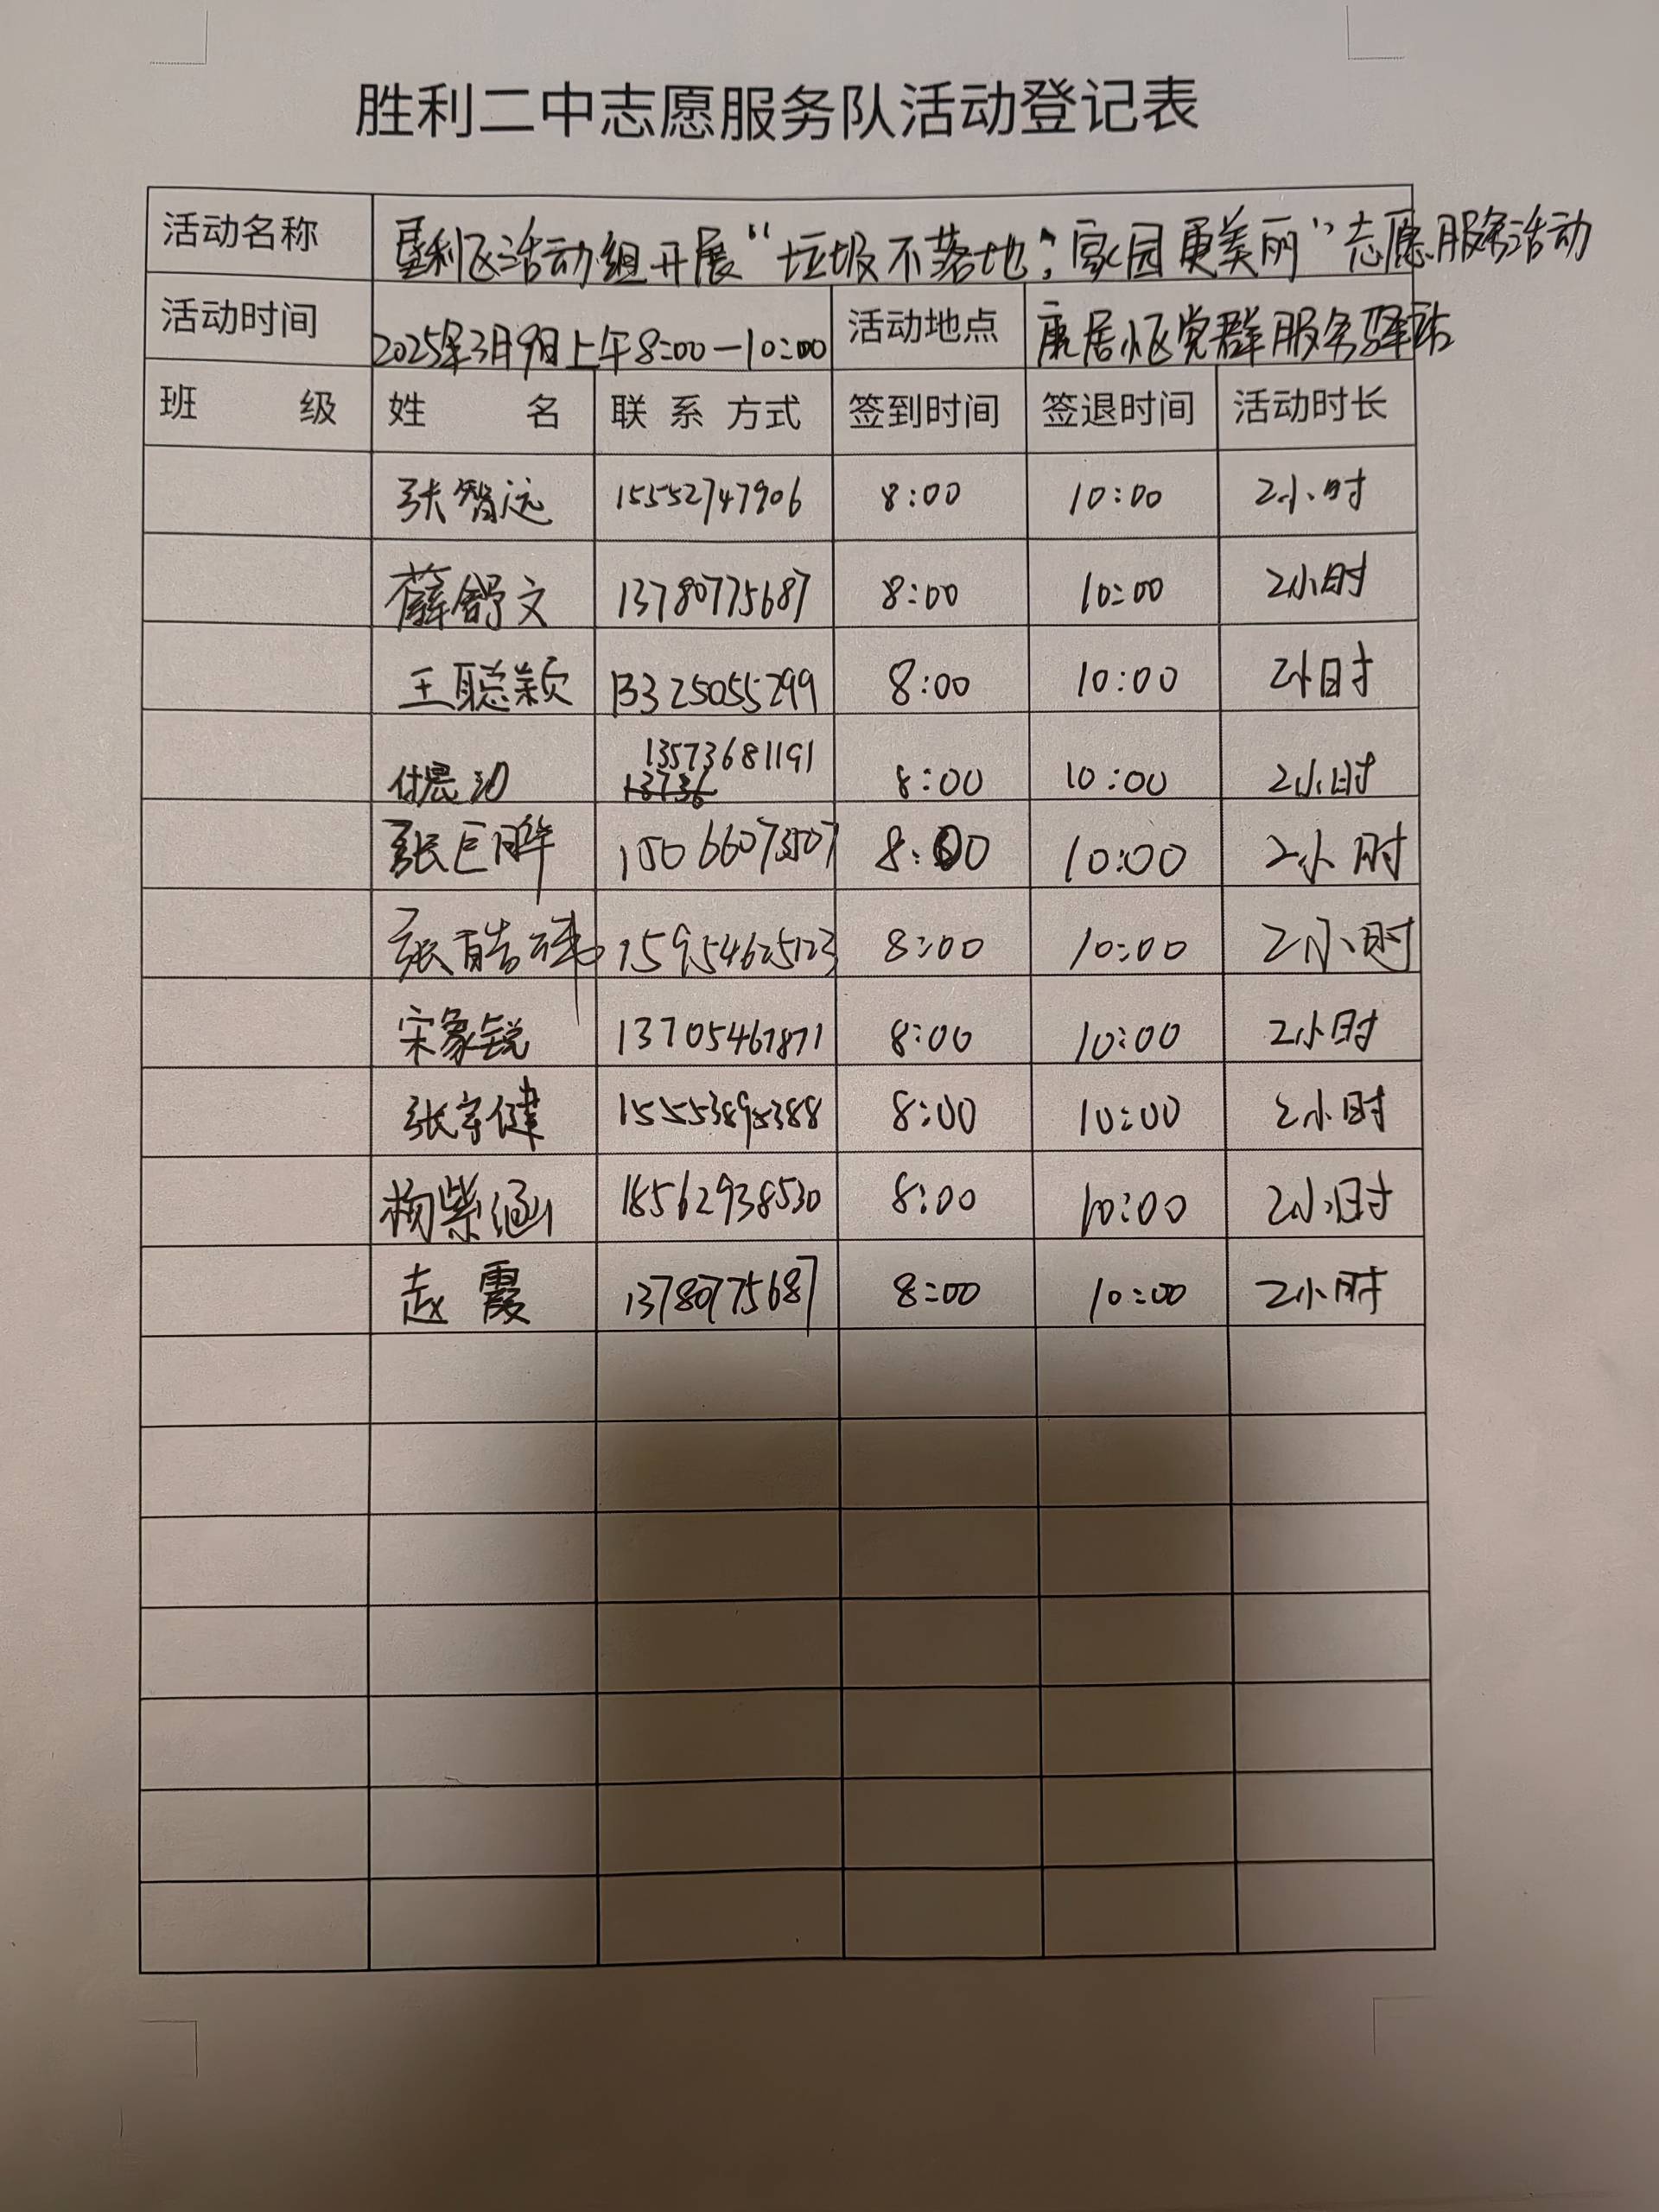 胜利二中志愿服务队活动登记表
活动名称 垦利区活动组开展“垃圾不落地,家园更美丽”志愿服务活动
活动时间 2025年3月9日上午8:00—10:00 活动地点 康居小区党群服务驿站
班 级 姓 名 联 系 方式 签到时间 签退时间 活动时长
张智远 15552747906 8:00 10:00 2小时
薛舒文 13780775687 8:00 10:00 2小时
王聪颖 13325055299 8:00 10:00 2小时
13573681191
付晨 8:00 10:00 2小时
张巨晔 15066073507 8:00 10:00 2小时
张皓 15954625123 8:00 10:00 2小时
宋象锐 13705467871 8:00 10:00 2小时
张宇健 15553895388 8:00 10:00 2小时
杨紫涵 18562938530 8:00 10:00 2小时
赵霞 13780775687 8:00 10:00 2小时